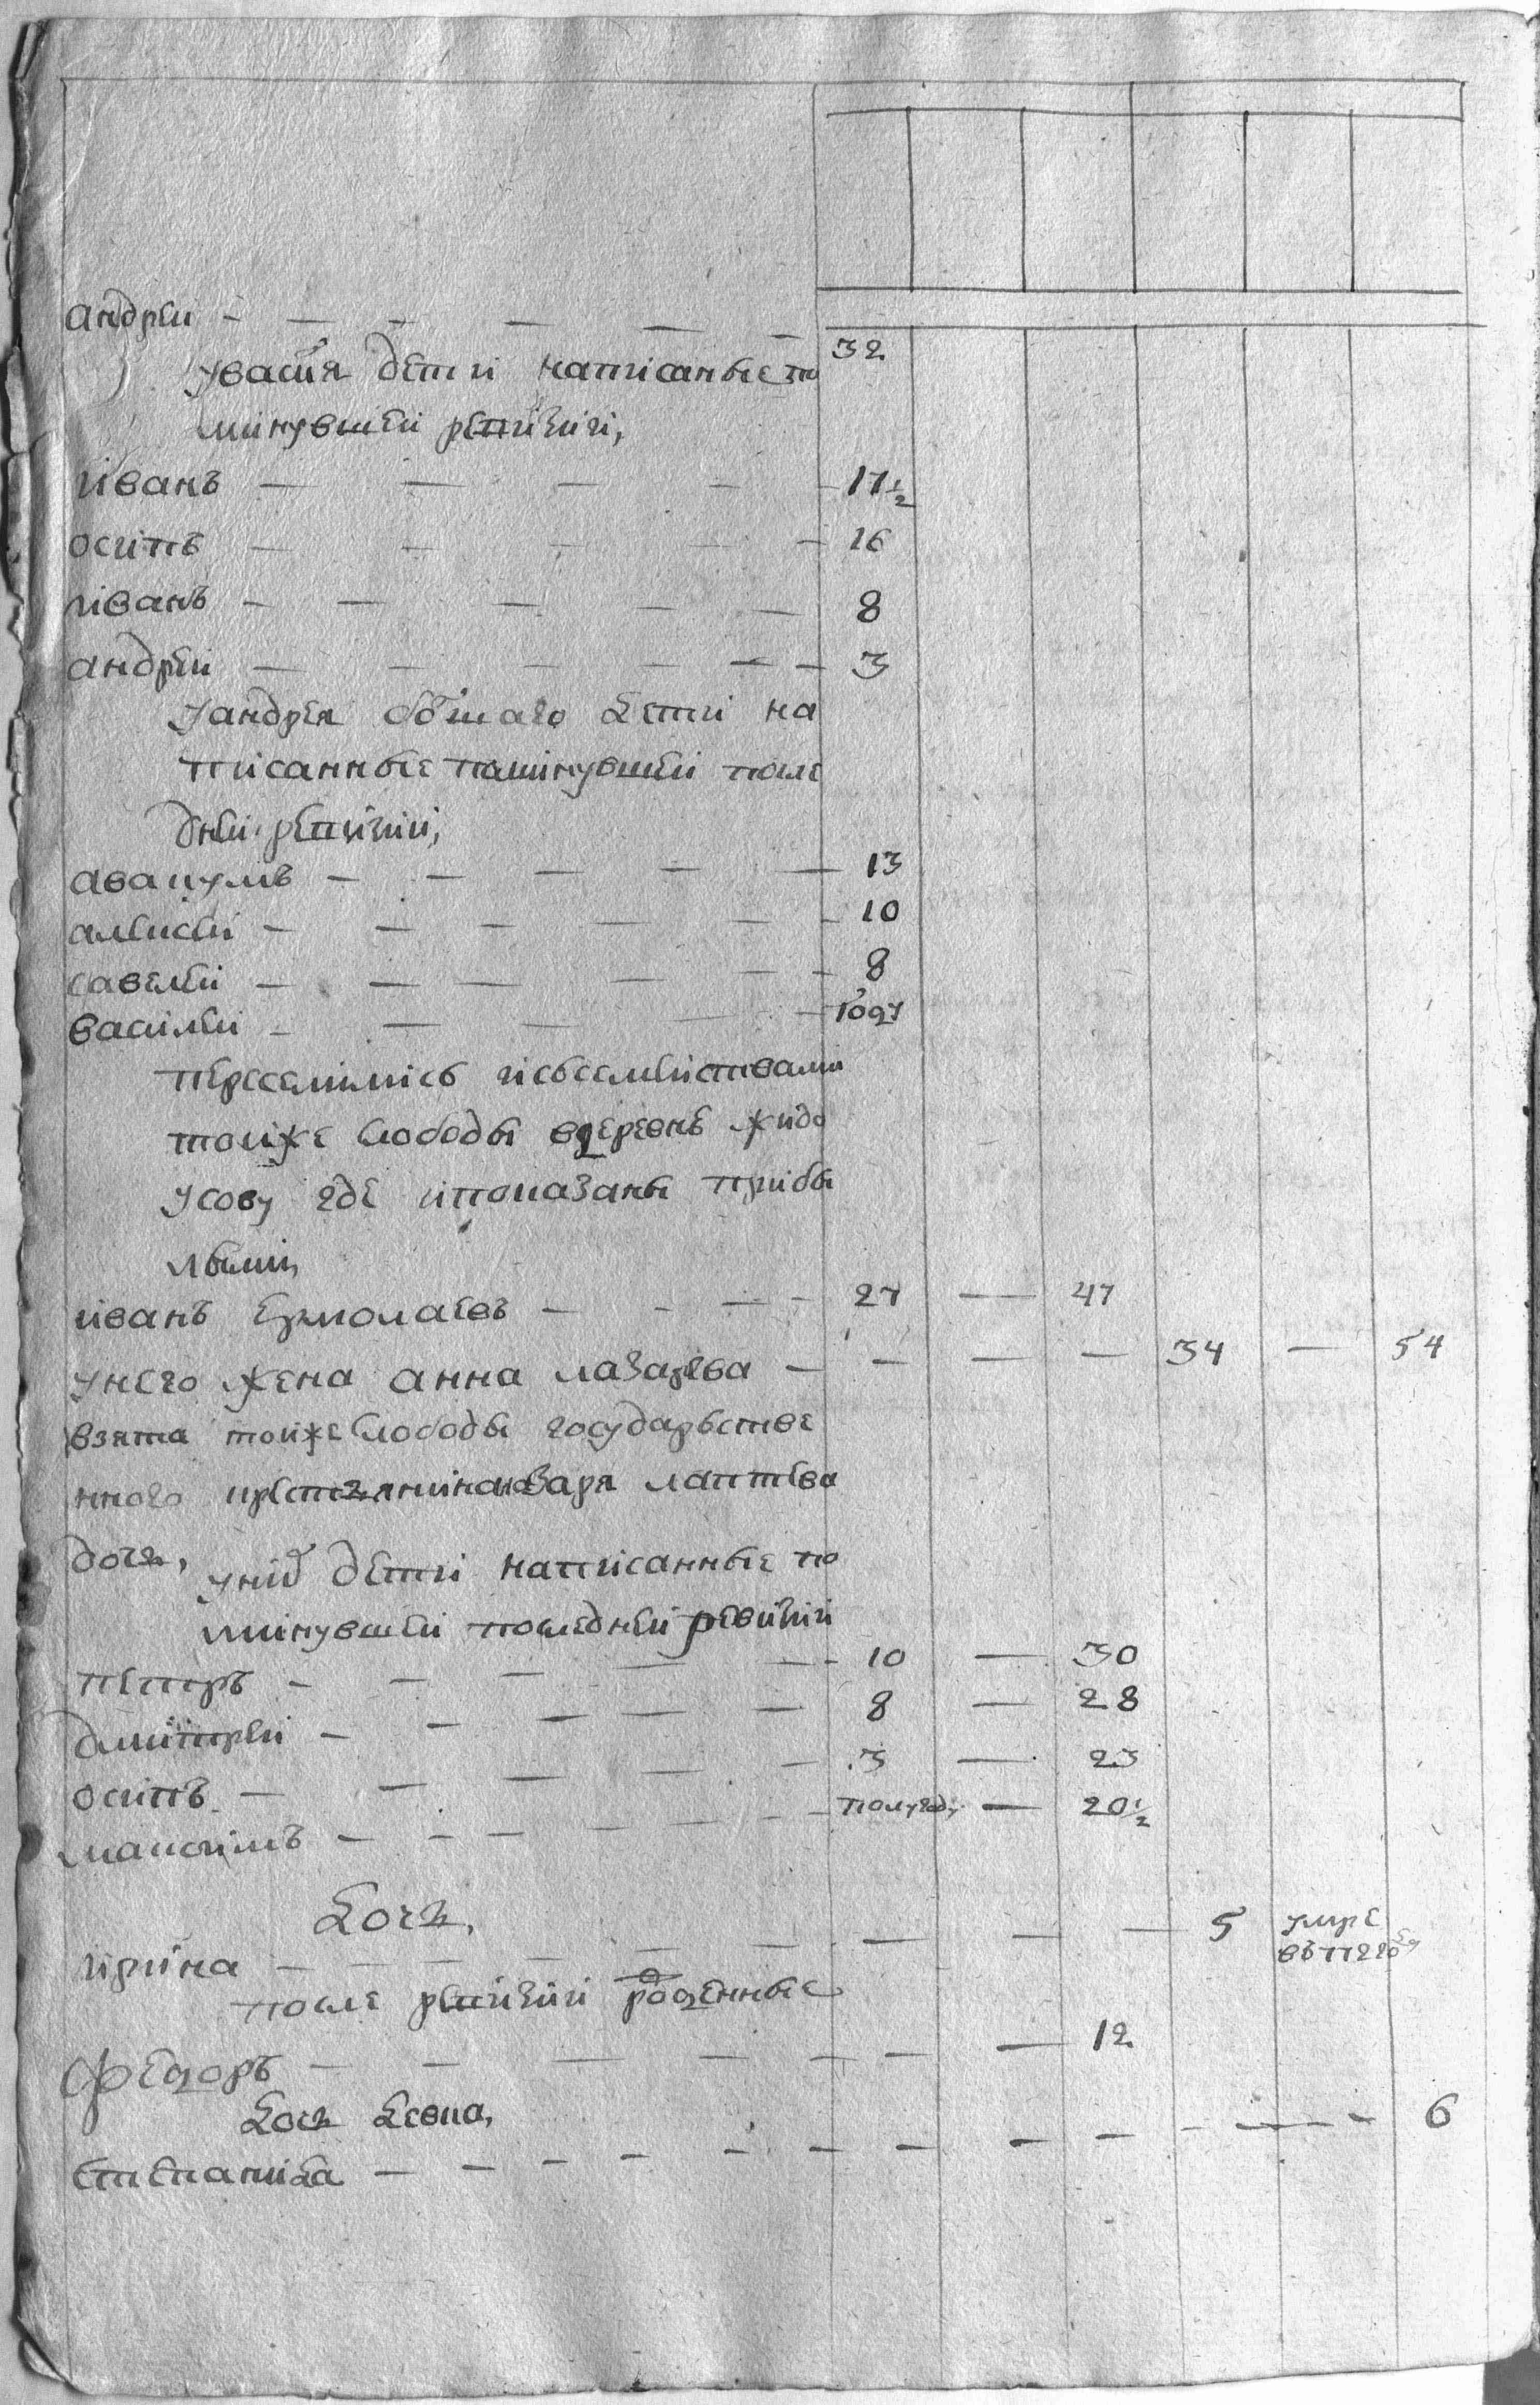 андреи - - - - - - 32
увасиля дети написанные по
минувшей ревизии,
иванъ - - - - - 17 1/2
осипъ - - - - - 16
иванъ - - - - - 8
андреи - - - - - - 3
у андрея болшаго дети на
писанные поминувшей после
дней ревизии,
авакумъ - - - - - 13
алексеи - - - - - - 10
савелеи - - - - - - 8
василеи - - - - - году
переселились исъсемействами
тойже слободы вдеревнѣ жидо
усову где ипоказаны прибы
лыми,
иванъ ермолаевъ - - - - 27 - 47
унего жена анна лазарева - - - - 34 - 54
взята тойже слободы государьстве
нного крестьянина лазаря лаптева
дочь,
уних дети написанные по
минувшей последней ревизии
петръ - - - - - - 10 - 30
дмитреи - - - - - - 8 - 28
осипъ - - - - - 3 - 23
максимъ - - - - - - - полугоду - 20 1/2
Дочь,
ирина - - - - - - - - - 5 умре
после ревизии рожденные
федоръ - - - - - - - 12
Дочь Девка,
степанида - - - - - - - - - - - - 6